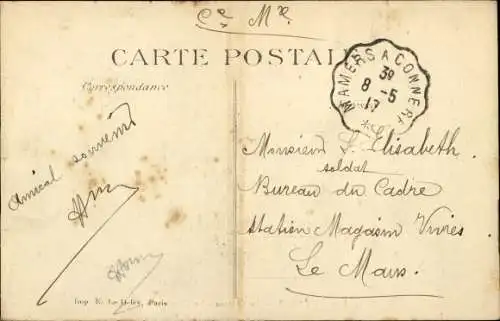 Cce Mre
CARTE POSTALE
MAMERS A CONNERRÉ
39
8-5
17
Correspondance
Monsieur L. Elisabeth
soldat
Bureau du Cadre
Station Magasin Vivres
Le Mans.
Amical souvenir
Imp. E. Le Deley, Paris